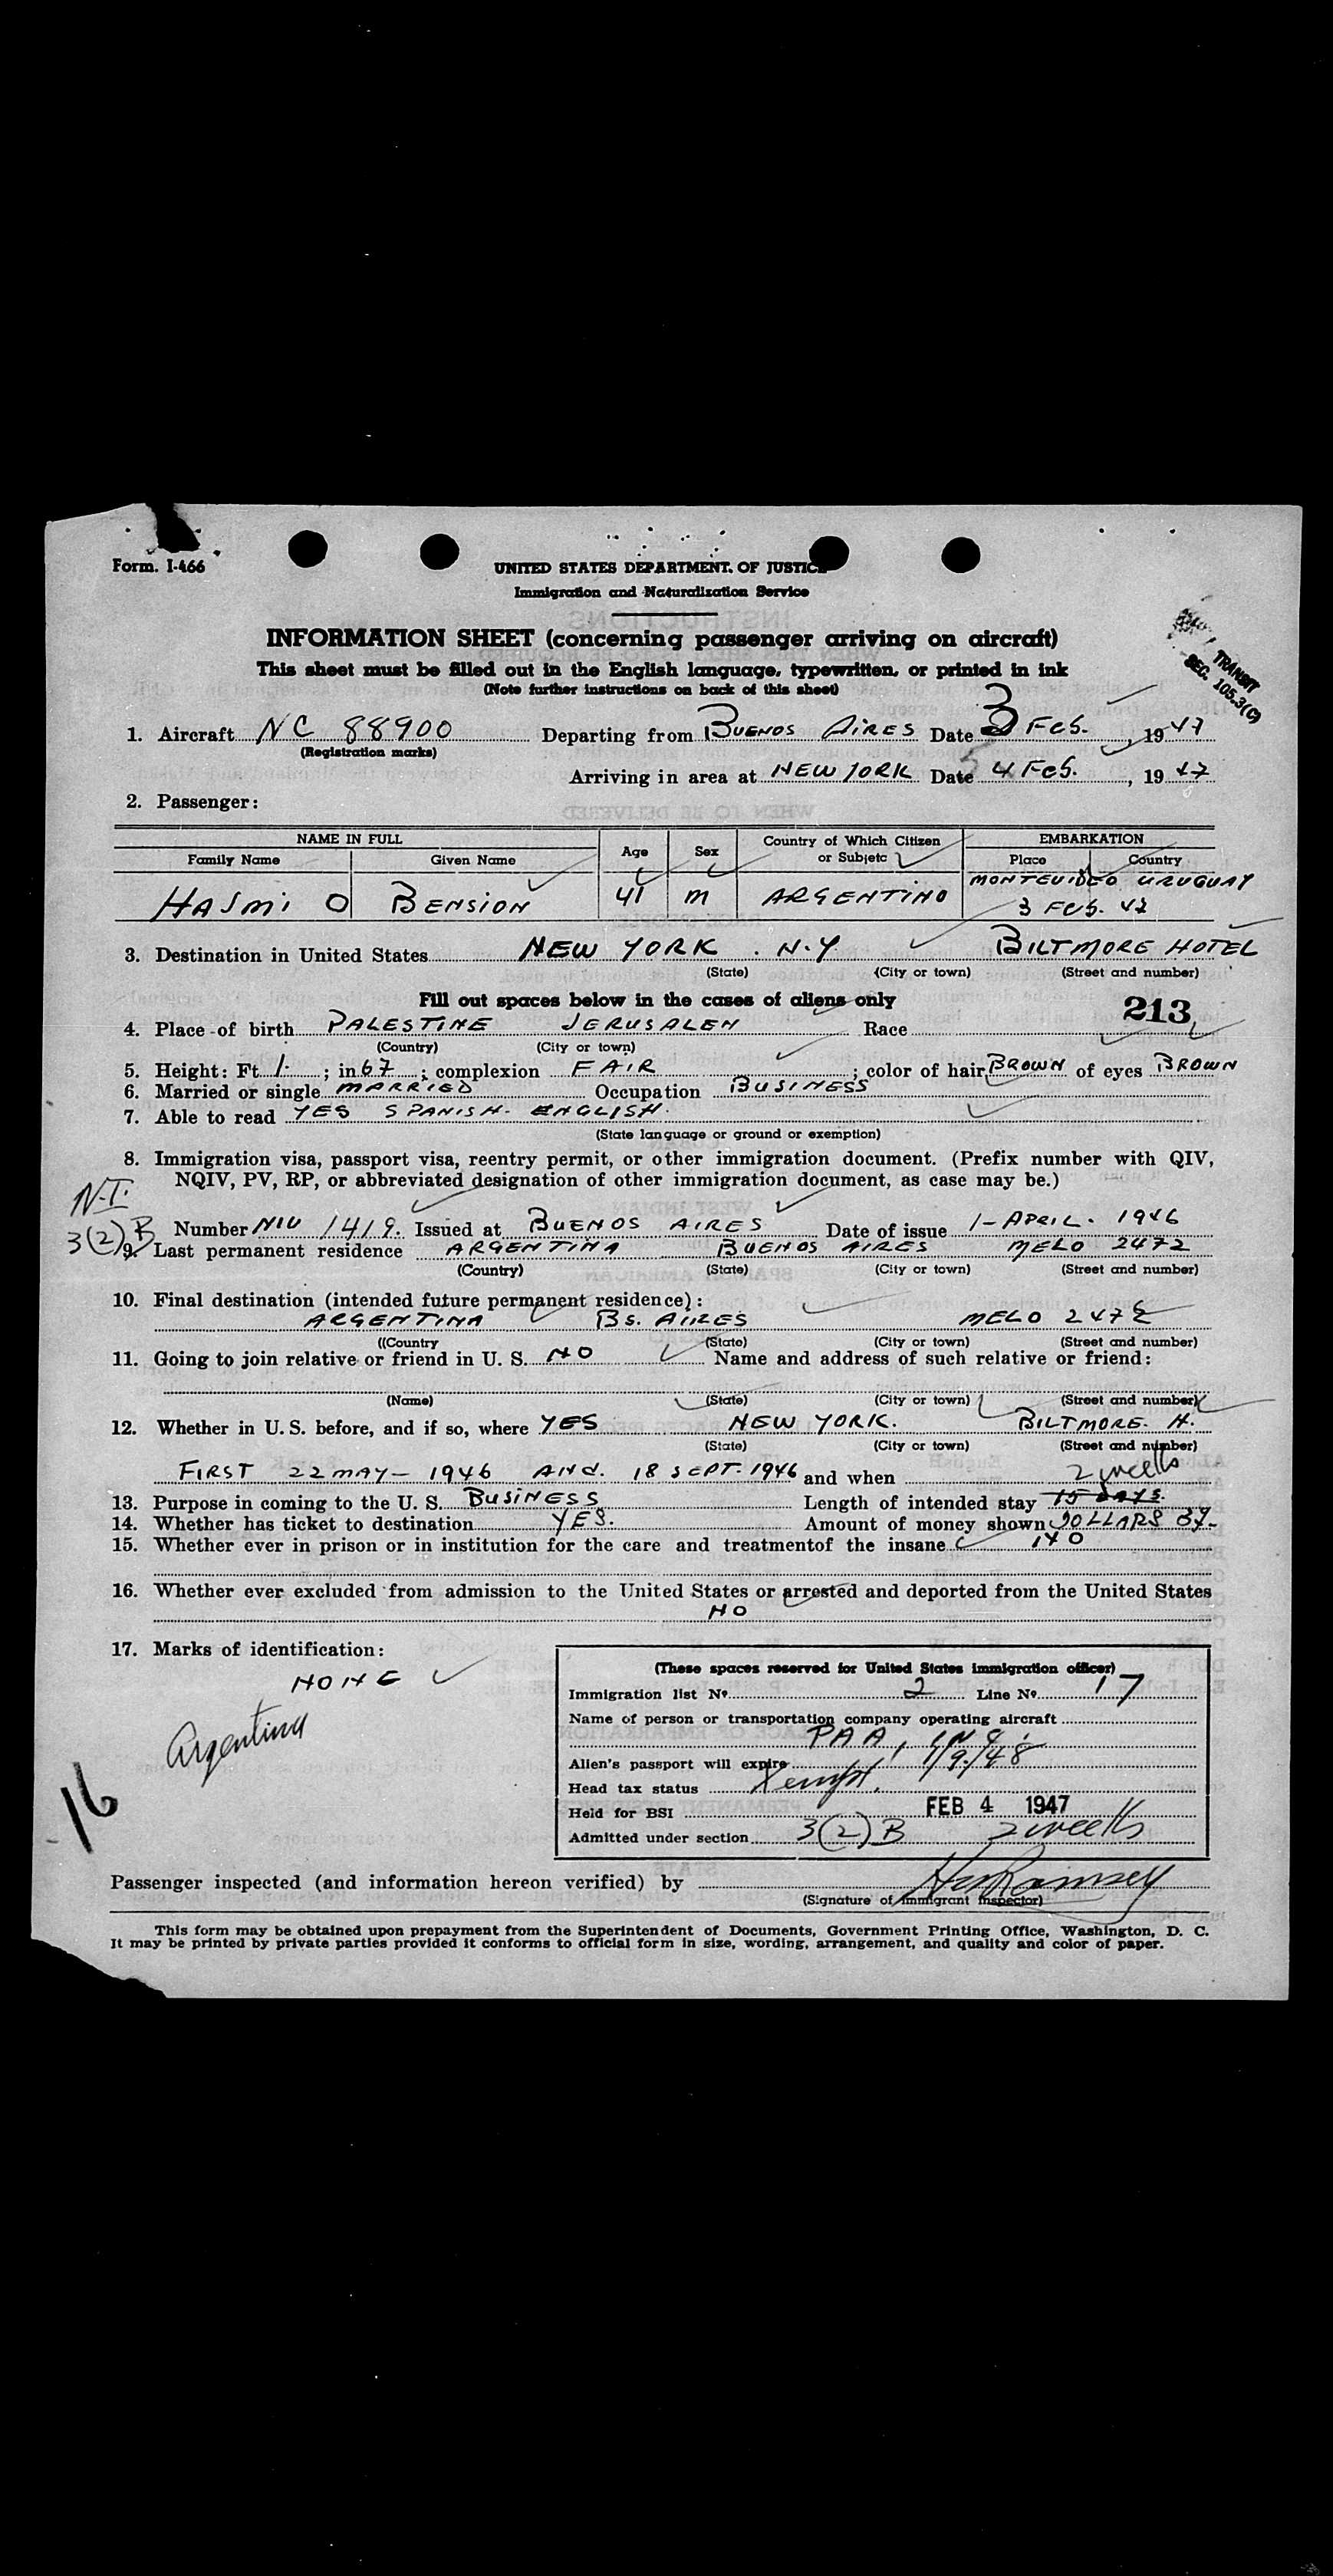 Form. I-466
UNITED STATES DEPARTMENT. OF JUSTICE
Immigration and Naturalization Service
INFORMATION SHEET (concerning passenger arriving on aircraft)
This sheet must be filled out in the English language, typewritten, or printed in ink
(Note further instructions on back of this sheet)
TRANSIT
SEC. 105.3(C)
1. Aircraft NC 88900 Departing from BUENOS AIRES Date 3 FEB. , 19 47
(Registration marks)
Arriving in area at NEW YORK Date 4 FEB. , 19 47
2. Passenger:
NAME IN FULL Age Sex Country of Which Citizen or Subjetc EMBARKATION
Family Name Given Name Place Country
HASMi O BENSION 41 M ARGENTINO MONTEVIDEO URUGUAY
3 FEB. 47
3. Destination in United States NEW YORK . N.Y. BILTMORE HOTEL
(State) (City or town) (Street and number)
Fill out spaces below in the cases of aliens only
213
4. Place of birth PALESTINE JERUSALEM Race
(Country) (City or town)
5. Height: Ft 1. ; in 67 ; complexion FAIR ; color of hair BROWN of eyes BROWN
6. Married or single MARRIED Occupation BUSINESS
7. Able to read YES SPANISH. ENGLISH.
(State language or ground or exemption)
8. Immigration visa, passport visa, reentry permit, or other immigration document. (Prefix number with QIV,
NQIV, PV, RP, or abbreviated designation of other immigration document, as case may be.)
N.I.
3(2)B
Number NIV 1419. Issued at BUENOS AIRES Date of issue 1-APRIL. 1946
9. Last permanent residence ARGENTINA BUENOS AIRES MELO 2472
(Country) (State) (City or town) (Street and number)
10. Final destination (intended future permanent residence):
ARGENTINA BS. AIRES MELO 2472
((Country (State) (City or town) (Street and number)
11. Going to join relative or friend in U. S. NO Name and address of such relative or friend:
(Name) (State) (City or town) (Street and number)
12. Whether in U. S. before, and if so, where YES NEW YORK. BILTMORE. H.
(State) (City or town) (Street and number)
FIRST 22 MAY - 1946 AND. 18 SEPT. 1946 and when
2 weeks
13. Purpose in coming to the U. S. BUSINESS Length of intended stay 15 DAYS.
14. Whether has ticket to destination YES. Amount of money shown DOLLARS 37.-
15. Whether ever in prison or in institution for the care and treatmentof the insane NO
16. Whether ever excluded from admission to the United States or arrested and deported from the United States
NO
17. Marks of identification:
NONE
Argentina
16
(These spaces reserved for United States immigration officer)
Immigration list Nº 2 Line Nº 17
Name of person or transportation company operating aircraft
PAA,
Alien's passport will expire 1/9/48
Head tax status Xempt.
Held for BSI FEB 4 1947
Admitted under section 3(2)B 2 weeks
Passenger inspected (and information hereon verified) by Ramsey
(Signature of Immigrant Inspector)
This form may be obtained upon prepayment from the Superintendent of Documents, Government Printing Office, Washington, D. C.
It may be printed by private parties provided it conforms to official form in size, wording, arrangement, and quality and color of paper.